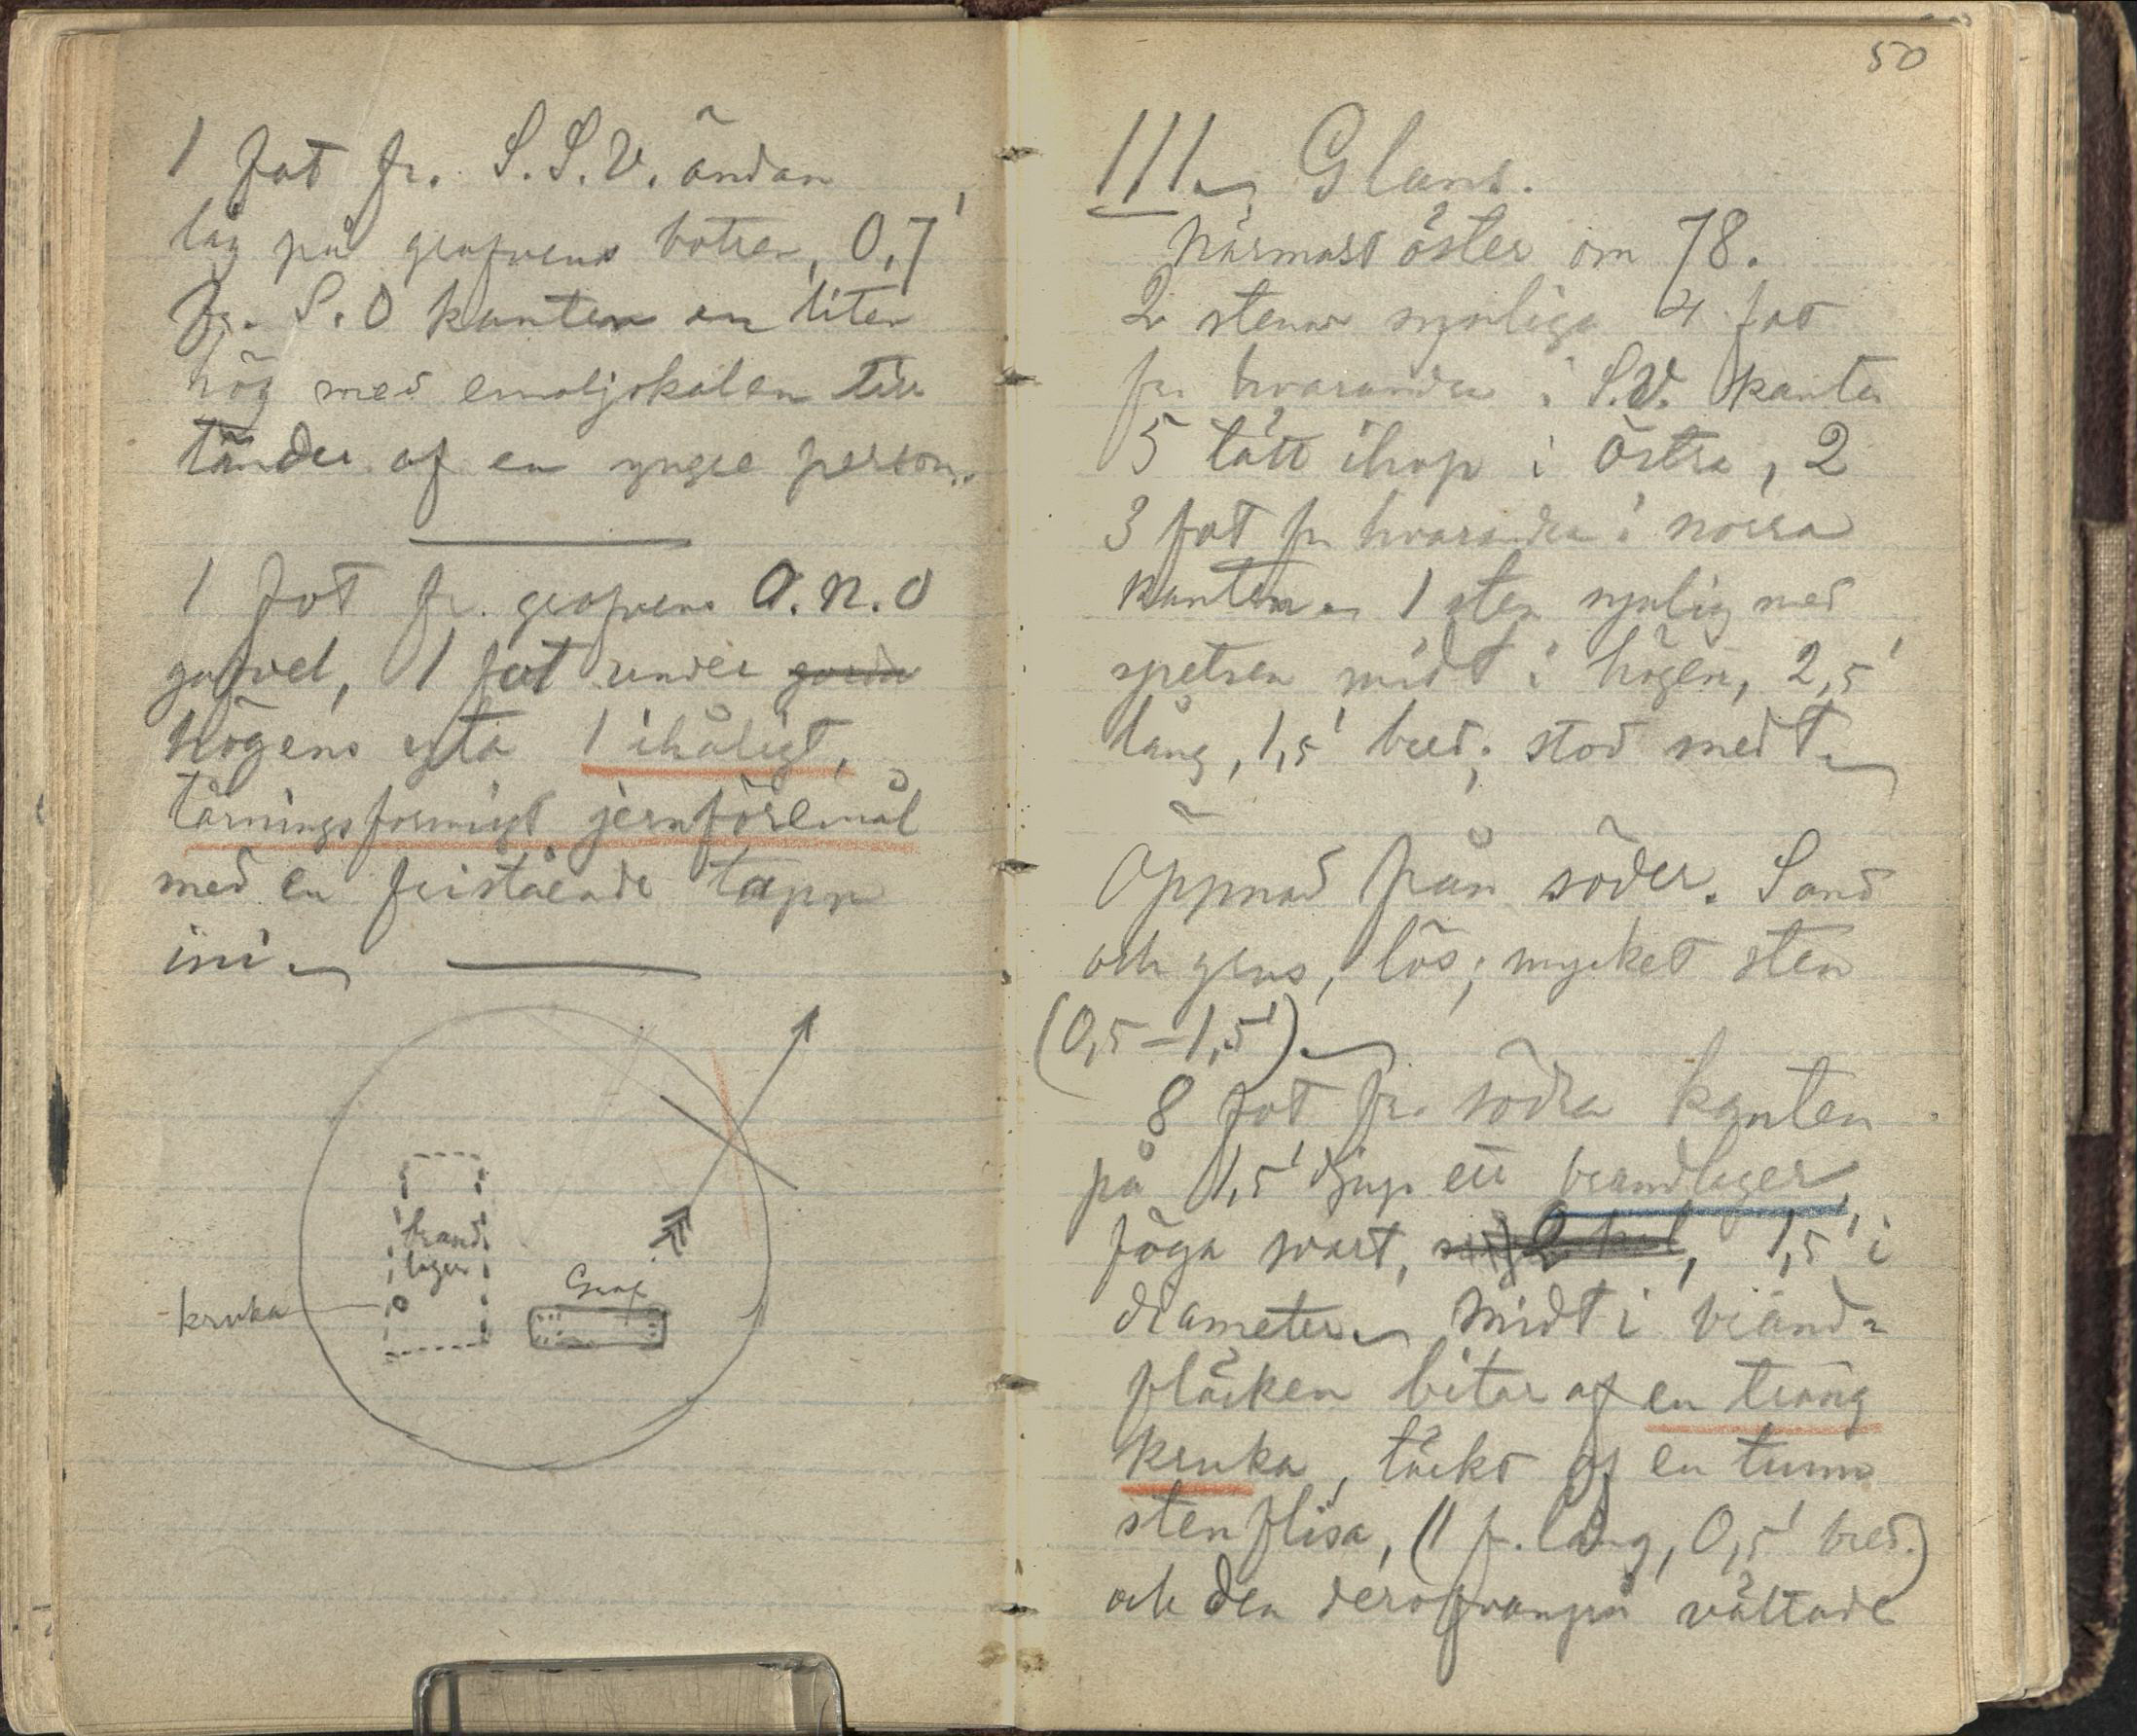 1 fot fr. S.S.V. ändan
låg på grafvens botten, 0,7'
fr. S.O kanten en liten
hög med emaljskalen till
tänder af en yngre person.
1 fot fr. grafvens O.N.O
gafvel, 1 fot under
högens yta 1 ihåligt,
tärningsformigt jernföremål
med en fristående tapp
ini.
brand
lager
Graf
kruka
50
111. Glans.
Närmast öster om 78.
2 stenar synliga 4 fot
fr hvarandra i S.V. kanten
5 tätt ihop i Östra, 2
3 fot fr hvarandra i norra
kanten. 1 sten synlig med
spetsen midt i högen, 2,5'
lång, 1,5' bred; stod med t.
Öppnad från söder. Sand
och grus, lös; mycket sten
(0,5-1,5').
8 fot fr. södra kanten
på 1,5' djup ett brandlager,
föga svart, 1,5' i
diameter. Midt i bränd-
fläcken bitar af en trång
kruka, täckt af en tunn
stenflisa, (1 f. lång, 0,5' bred.)
och den derofvanpå vältade